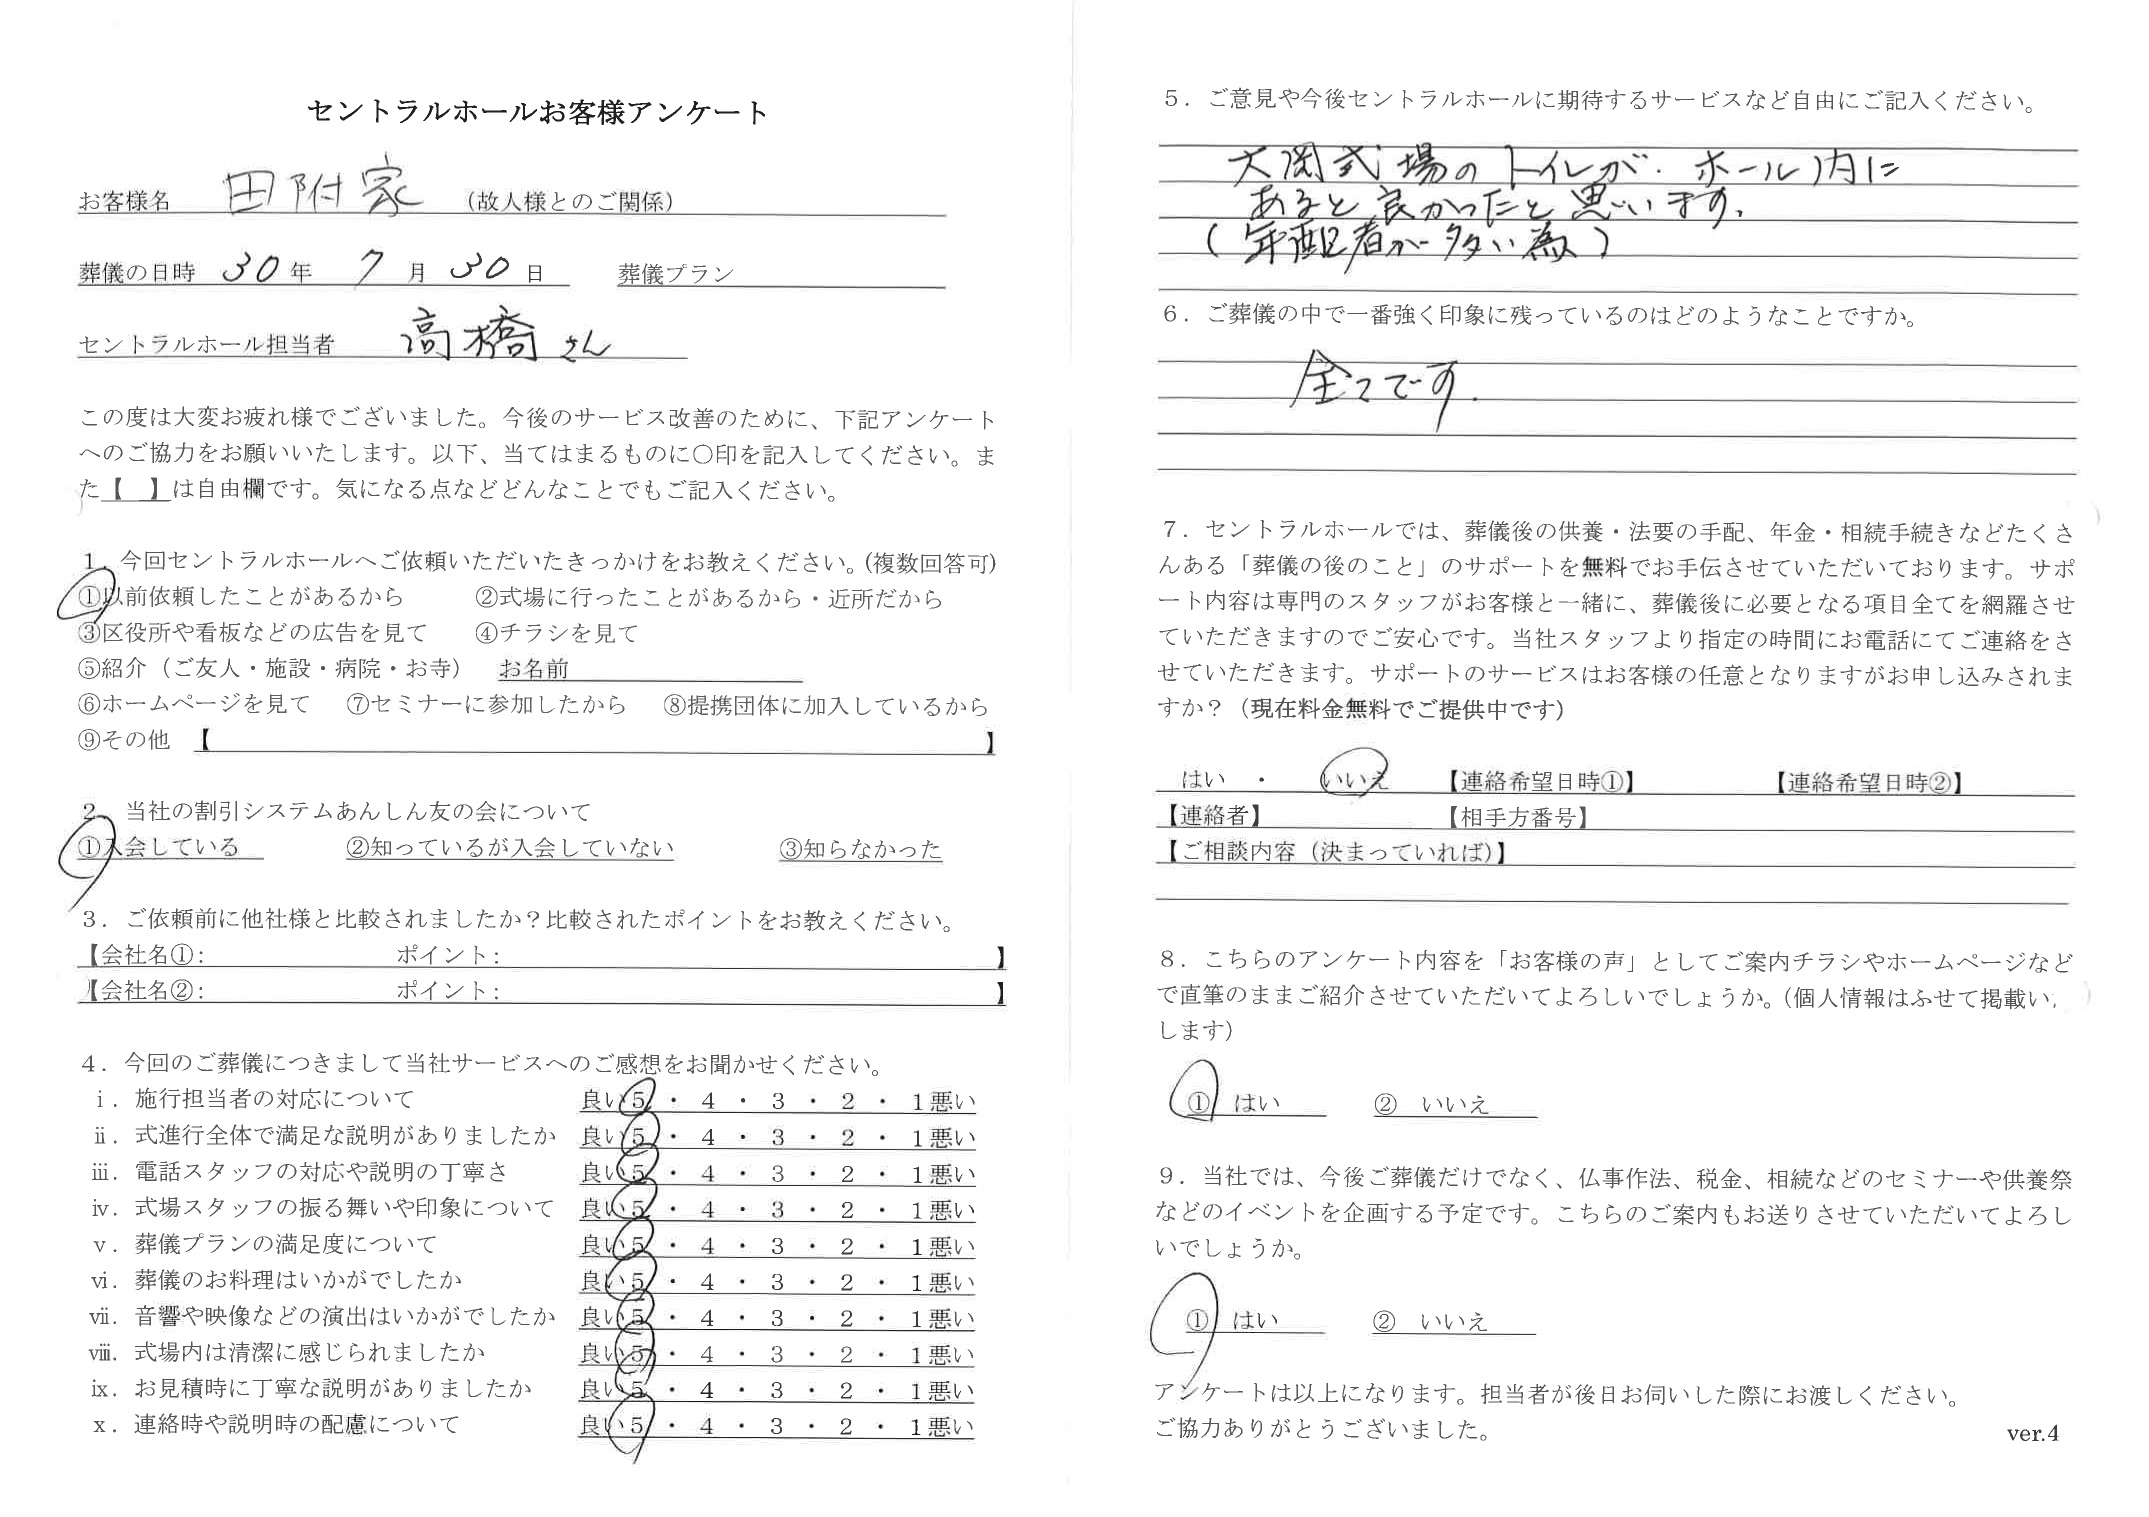 セントラルホールお客様アンケート
お客様名 田附家 (故人様とのご関係)
葬儀の日時 30年 7月 30日 葬儀プラン
セントラルホール担当者 高橋さん
この度は大変お疲れ様でございました。今後のサービス改善のために、下記アンケート
へのご協力をお願いいたします。以下、当てはまるものに〇印を記入してください。ま
た【 】は自由欄です。気になる点などどんなことでもご記入ください。
1. 今回セントラルホールへご依頼いただいたきっかけをお教えください。(複数回答可)
①以前依頼したことがあるから ②式場に行ったことがあるから・近所だから
③区役所や看板などの広告を見て ④チラシを見て
⑤紹介（ご友人・施設・病院・お寺） お名前
⑥ホームページを見て ⑦セミナーに参加したから ⑧提携団体に加入しているから
⑨その他 【 】
2. 当社の割引システムあんしん友の会について
①入会している ②知っているが入会していない ③知らなかった
3．ご依頼前に他社様と比較されましたか？比較されたポイントをお教えください。
【会社名①： ポイント： 】
【会社名②： ポイント： 】
4．今回のご葬儀につきまして当社サービスへのご感想をお聞かせください。
ⅰ．施行担当者の対応について 良い 5 ・ 4 ・ 3 ・ 2 ・ 1 悪い
ⅱ．式進行全体で満足な説明がありましたか 良い 5 ・ 4 ・ 3 ・ 2 ・ 1 悪い
ⅲ．電話スタッフの対応や説明の丁寧さ 良い 5 ・ 4 ・ 3 ・ 2 ・ 1 悪い
ⅳ．式場スタッフの振る舞いや印象について 良い 5 ・ 4 ・ 3 ・ 2 ・ 1 悪い
ⅴ．葬儀プランの満足度について 良い 5 ・ 4 ・ 3 ・ 2 ・ 1 悪い
ⅵ．葬儀のお料理はいかがでしたか 良い 5 ・ 4 ・ 3 ・ 2 ・ 1 悪い
ⅶ．音響や映像などの演出はいかがでしたか 良い 5 ・ 4 ・ 3 ・ 2 ・ 1 悪い
ⅷ．式場内は清潔に感じられましたか 良い 5 ・ 4 ・ 3 ・ 2 ・ 1 悪い
ⅸ．お見積時に丁寧な説明がありましたか 良い 5 ・ 4 ・ 3 ・ 2 ・ 1 悪い
ⅹ．連絡時や説明時の配慮について 良い 5 ・ 4 ・ 3 ・ 2 ・ 1 悪い
5．ご意見や今後セントラルホールに期待するサービスなど自由にご記入ください。
大岡式場のトイレが、ホール内に
あると良かったと思います。
(年配者が多い為)
6．ご葬儀の中で一番強く印象に残っているのはどのようなことですか。
全てです.
7．セントラルホールでは、葬儀後の供養・法要の手配、年金・相続手続きなどたくさ
んある「葬儀の後のこと」のサポートを無料でお手伝させていただいております。サポ
ート内容は専門のスタッフがお客様と一緒に、葬儀後に必要となる項目全てを網羅させ
ていただきますのでご安心です。当社スタッフより指定の時間にお電話にてご連絡をさ
せていただきます。サポートのサービスはお客様の任意となりますがお申し込みされま
すか？（現在料金無料でご提供中です）
はい ・ いいえ 【連絡希望日時①】 【連絡希望日時②】
【連絡者】 【相手方番号】
【ご相談内容（決まっていれば）】
8．こちらのアンケート内容を「お客様の声」としてご案内チラシやホームページなど
で直筆のままご紹介させていただいてよろしいでしょうか。（個人情報はふせて掲載い
します）
① はい ② いいえ
9．当社では、今後ご葬儀だけでなく、仏事作法、税金、相続などのセミナーや供養祭
などのイベントを企画する予定です。こちらのご案内もお送りさせていただいてよろし
いでしょうか。
① はい ② いいえ
アンケートは以上になります。担当者が後日お伺いした際にお渡しください。
ご協力ありがとうございました。
ver.4